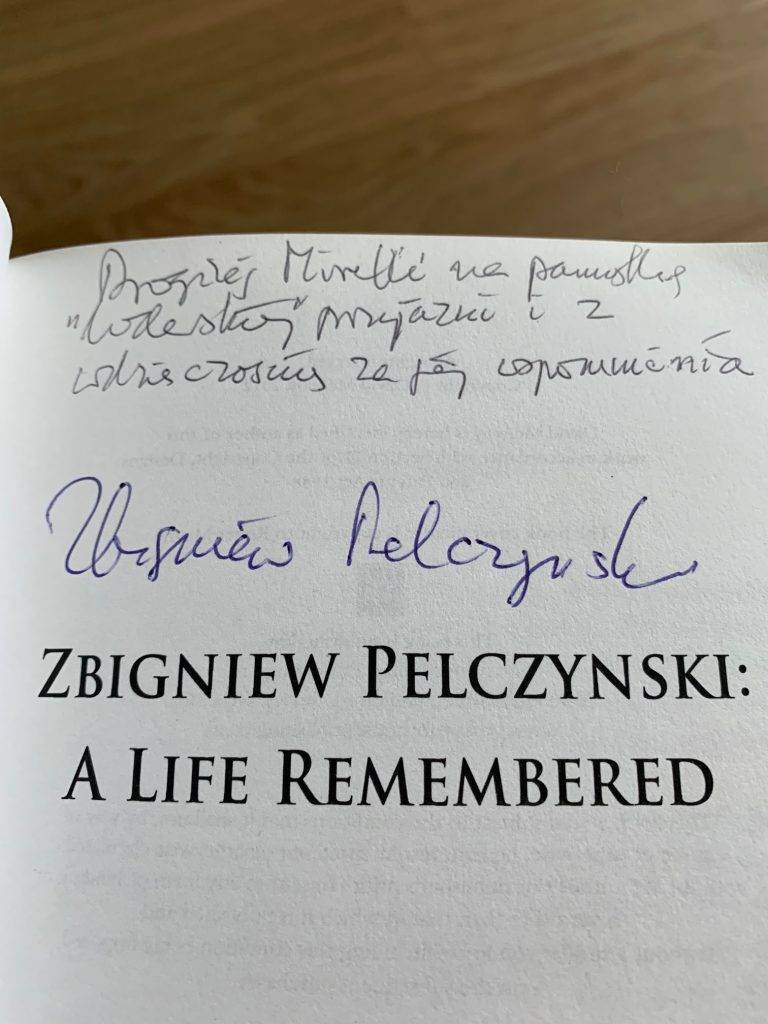 Drogiej Mirelli na pamiątkę
przyjaźni i z
wdzięcznością za jej wspomnienia
Zbigniew Pelczynski
ZBIGNIEW PELCZYNSKI:
A LIFE REMEMBERED